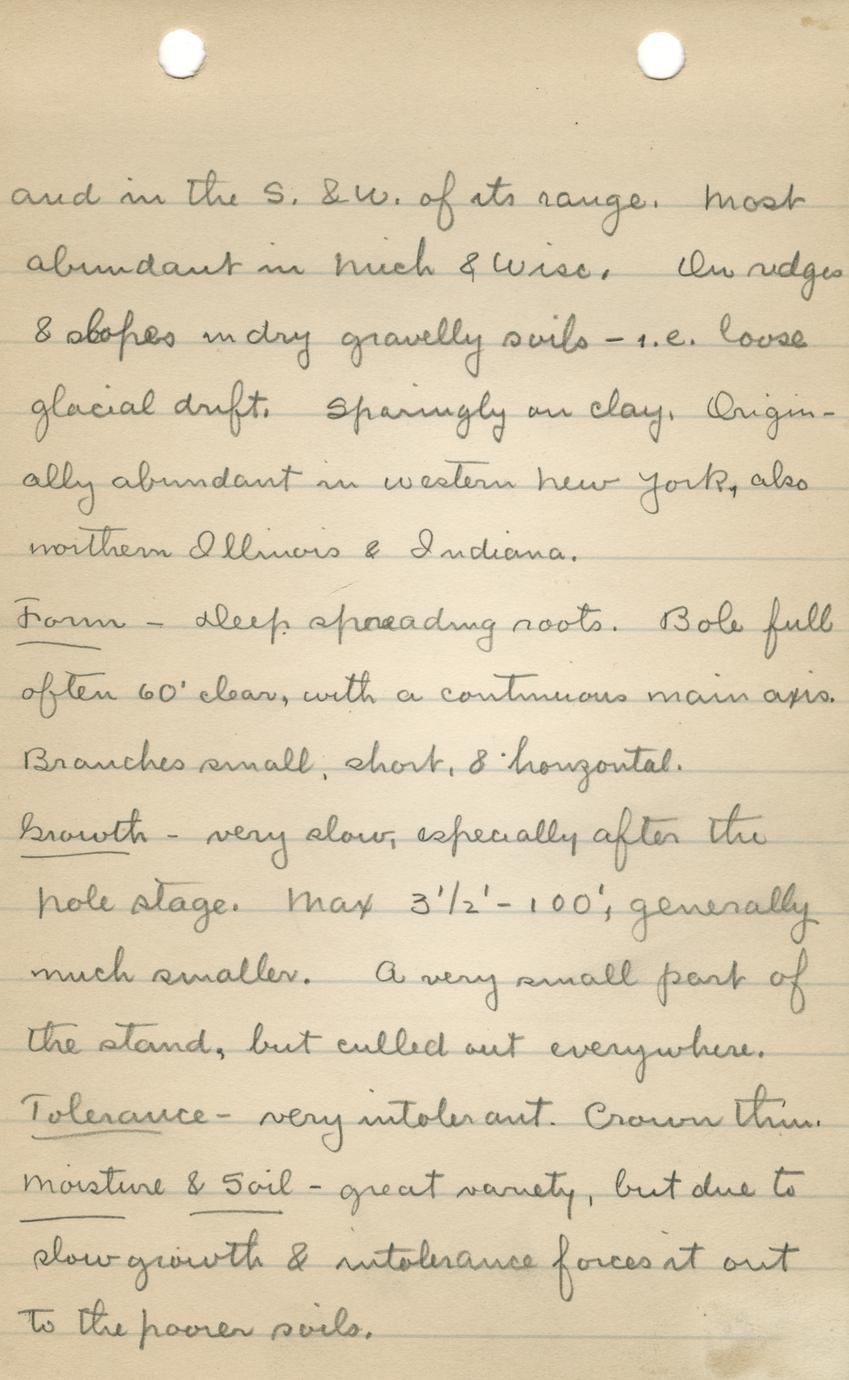 and in the S. & W. of its range. Most
abundant in Mich & Wisc. On ridges
& slopes in dry gravelly soils – i.e. loose
glacial drift. Sparingly on clay. Origin-
ally abundant in western New York, also
northern Illinois & Indiana.
Form – Deep spreading roots. Bole full
often 60' clear, with a continuous main axis.
Branches small, short, & horizontal.
Growth – very slow, especially after the
pole stage. Max 3 1/2' – 100', generally
much smaller. A very small part of
the stand, but culled out everywhere.
Tolerance – very intolerant. Crown thin.
Moisture & Soil – great variety, but due to
slow growth & intolerance forces it out
to the poorer soils.